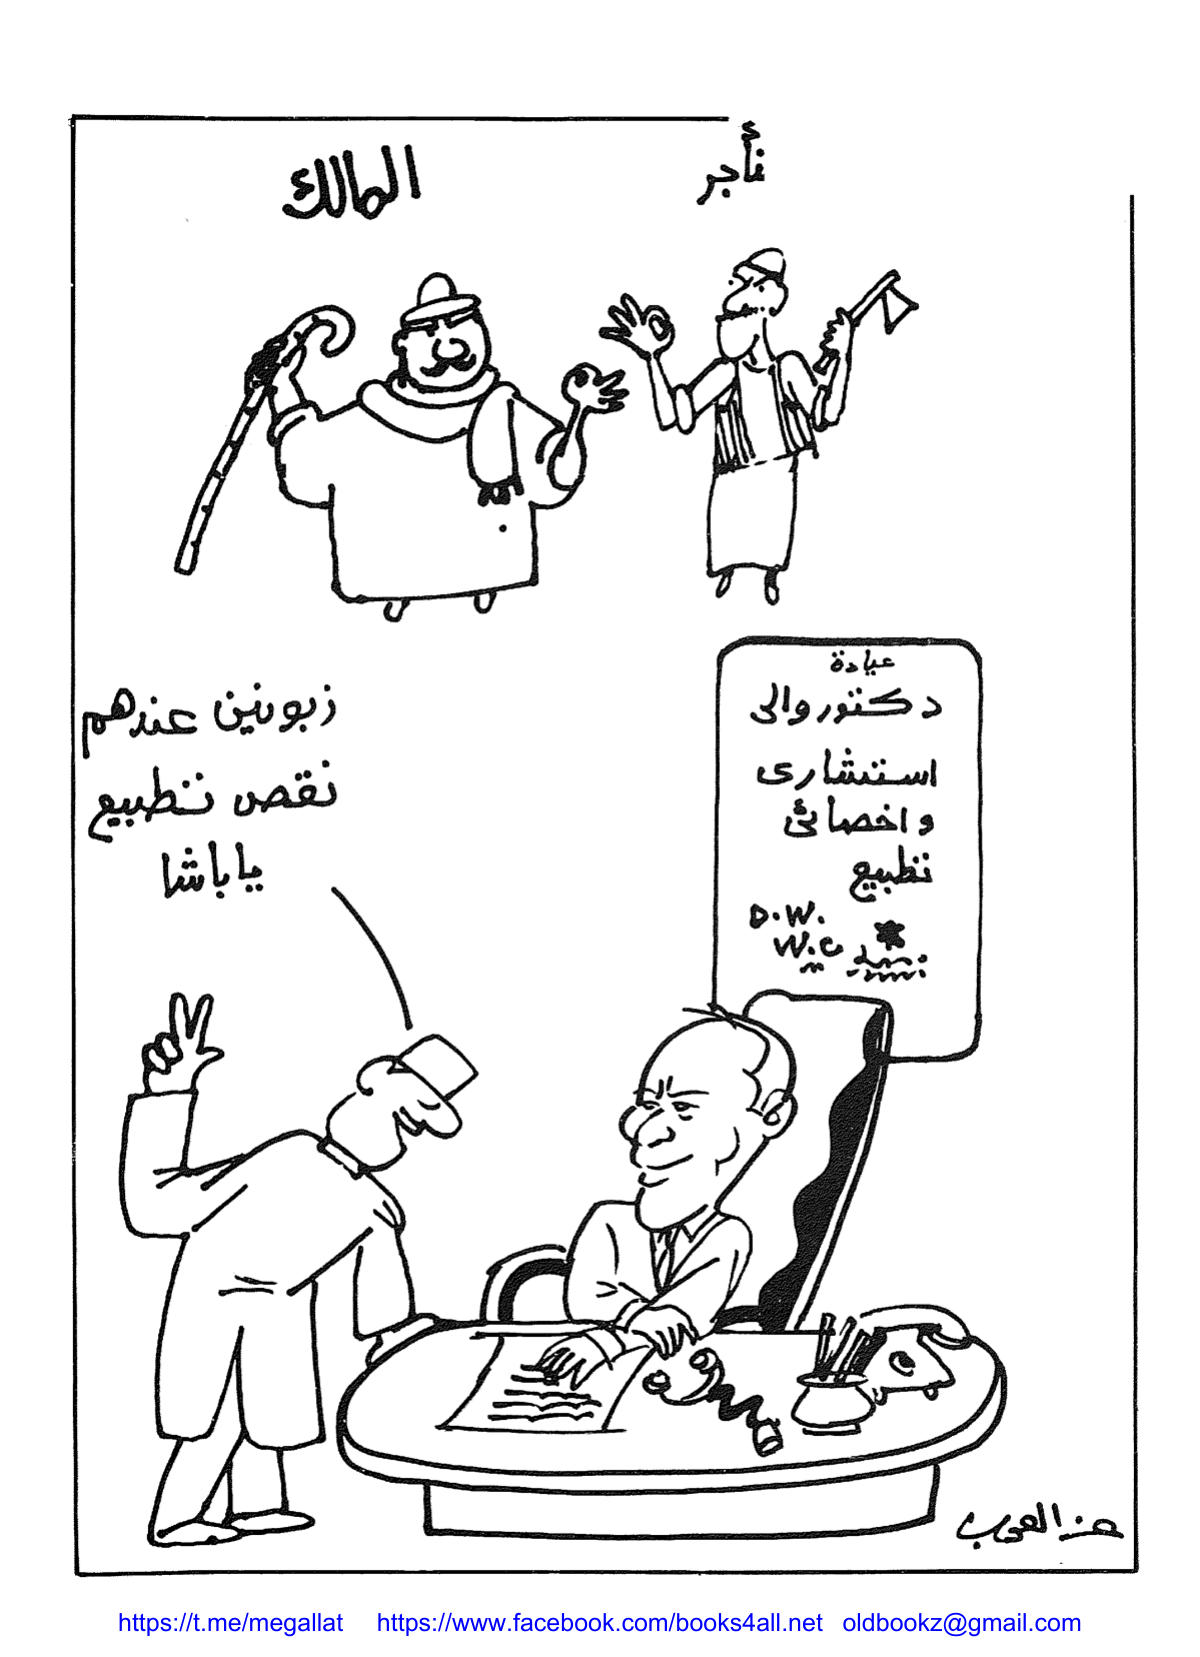 نأجر
المالك
عيادة
دكتور والى
استشارى
واخصائى
تطبيع
D.W.
W.C
زبونين عندهم
نقص تطبيع
ياباشا
عز العرب
https://t.me/megallat https://www.facebook.com/books4all.net oldbookz@gmail.com